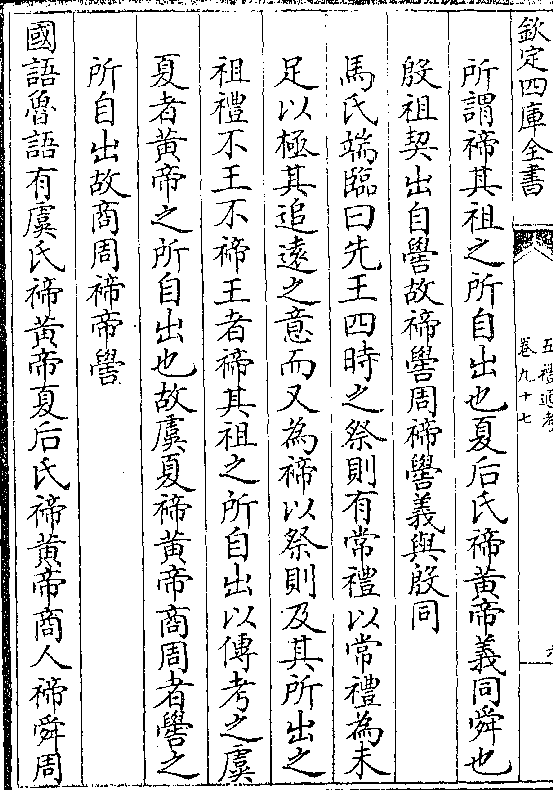 欽定四庫全書
五禮通考
卷九十七
六
所謂禘其祖之所自出也夏后氏禘黃帝義同舜也
殷祖契出自嚳故禘嚳周禘嚳義與殷同
馬氏端臨曰先王四時之祭則有常禮以常禮為未
足以極其追逺之意而又為禘以祭則及其所出之
祖禮不王不禘王者禘其祖之所自出以傳考之虞
夏者黃帝之所自出也故虞夏禘黃帝商周者嚳之
所自出故商周禘帝嚳
國語魯語有虞氏禘黃帝夏后氏禘黃帝商人禘舜周